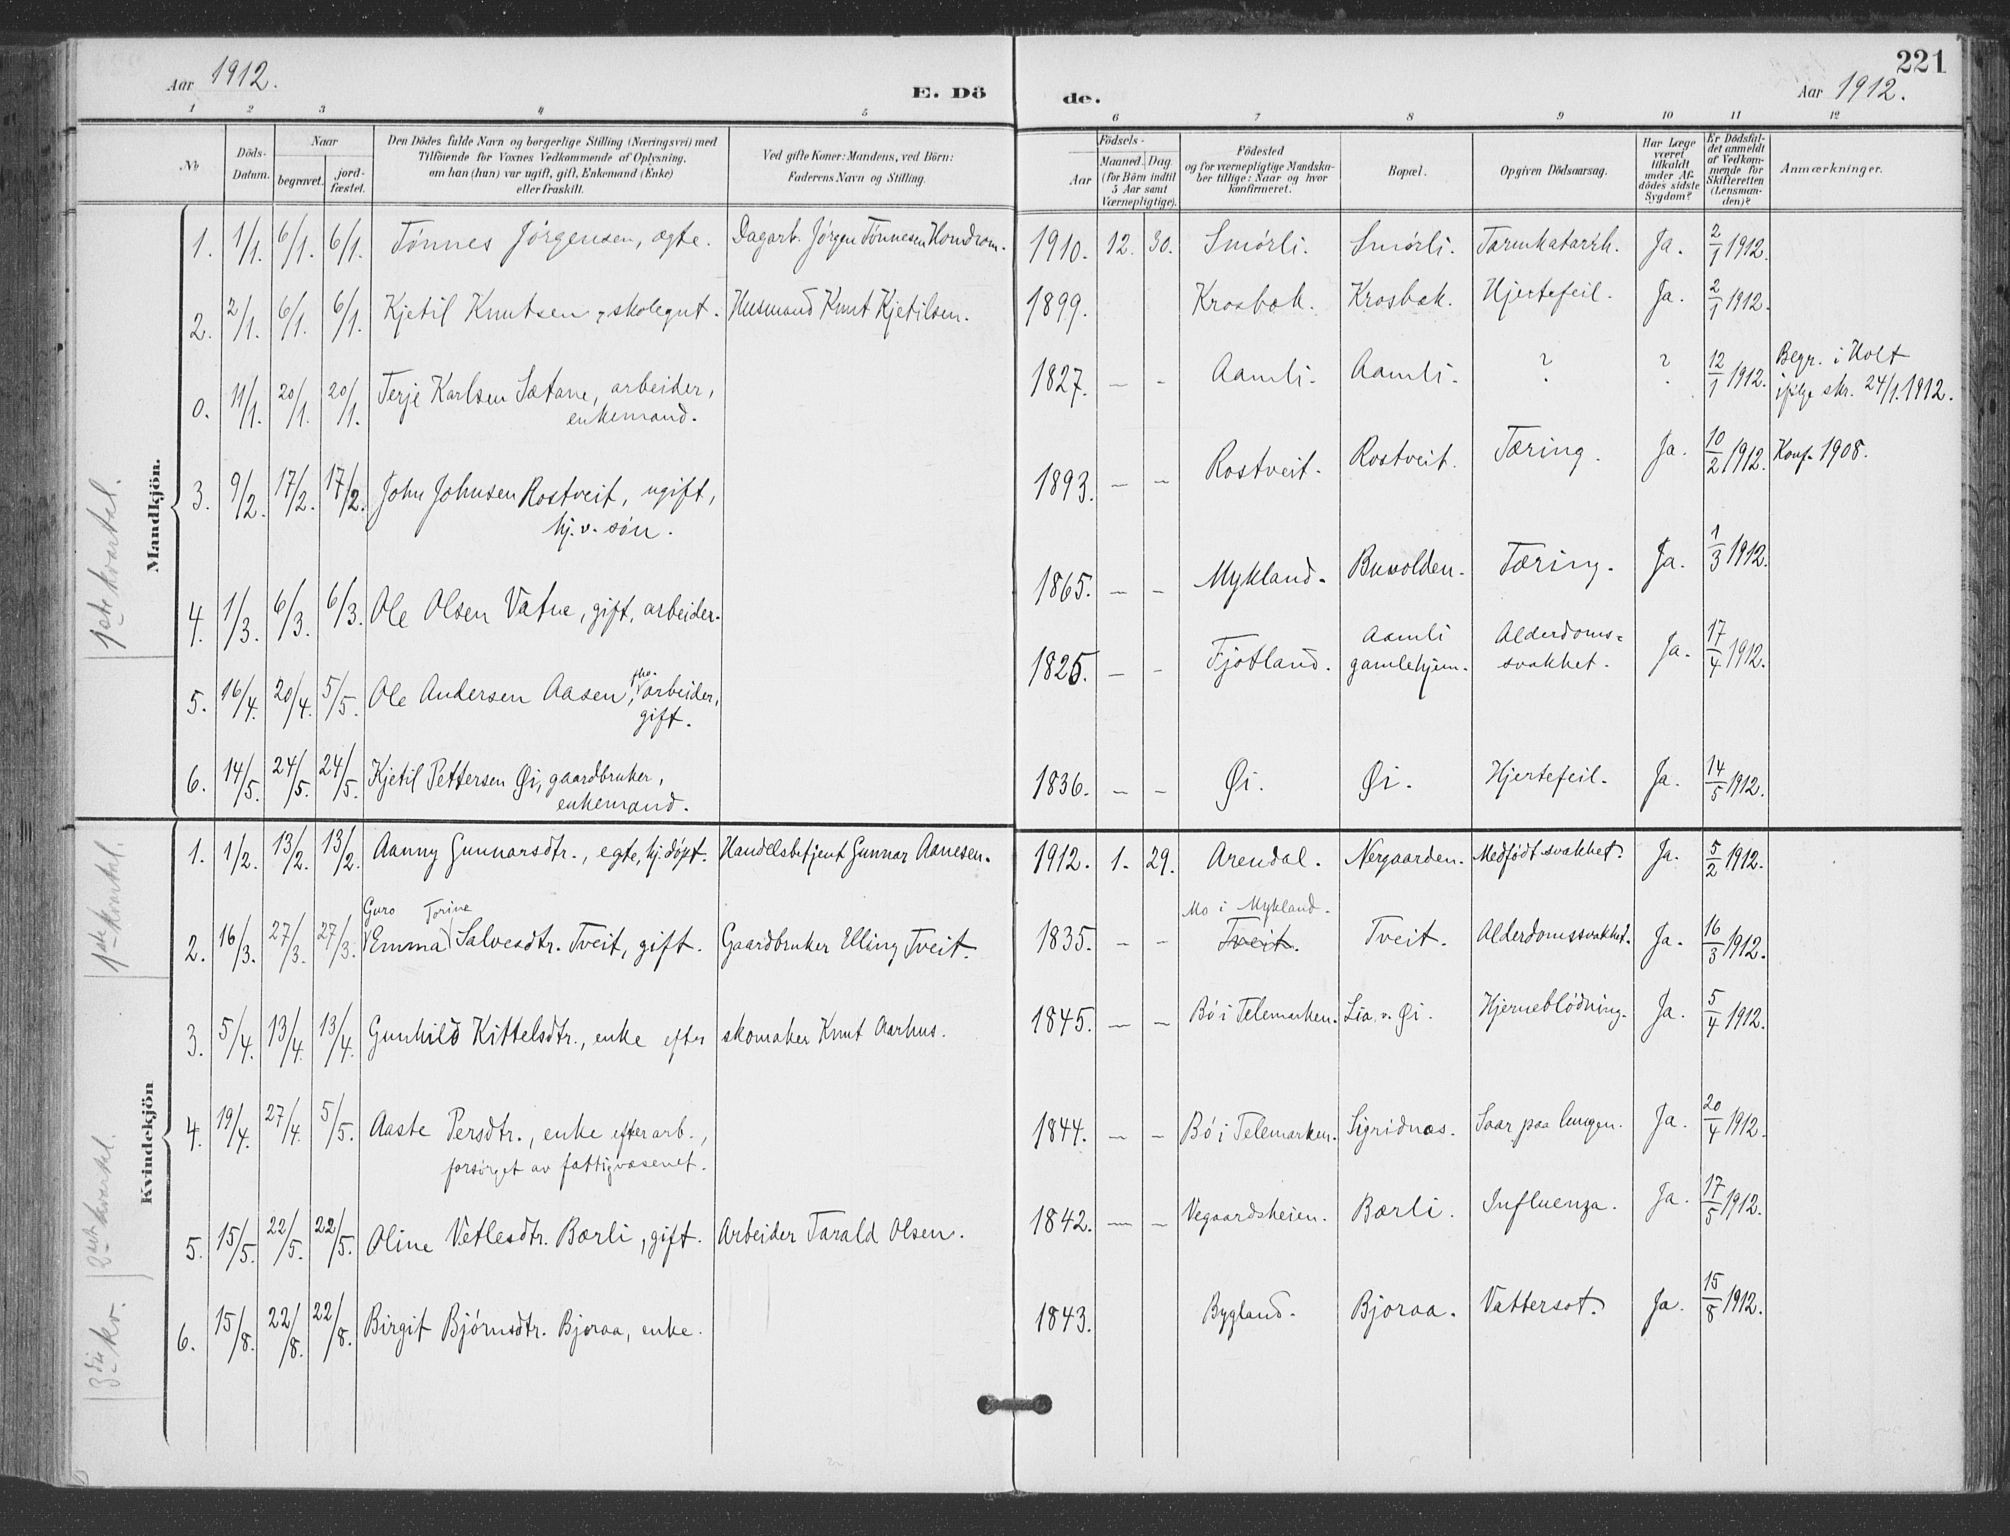 Aar 1912.
E. Dö
de.
221
Aar 1912.
1 2 3 4 5 6 7 8 9 10 11 12
No
Döds-Datum.
Naar
begravet.
jord-fæstet.
Den Dödes fulde Navn og borgerlige Stilling (Næringsvei) med
Tilföiende for Voxnes Vedkommende af Oplysning,
om han (hun) var ugift, gift, Enkemand (Enke)
eller fraskilt.
Ved gifte Koner: Mandens, ved Börn:
Faderens Navn og Stilling.
Födsels-
Aar
Maaned. Dag.
(for Börn indtil
5 Aar samt
Værnepligtige).
Födested
og for værnepligtige Mandska-
ber tillige: Naar og hvor
konfirmeret.
Bopæl.
Opgiven Dödsaarsag.
Har Læge
været
tilkaldt
under Af-
dödes sidste
Sygdom?
Er Dödsfal-
det anmeldt
af Vedkom-
mende for
Skifteretten
(Lensman-
den)?
Anmærkninger.
Mandkjön.
1ste kvartal.
1. 1/1. 6/1. 6/1. Tønnes Jørgensen, ægte. Dagarb. Jørgen Tønnesen Homdrom. 1910. 12. 30. Smørli. Smørli. Tarmkatarrh. Ja. 2/1 1912.
2. 2/1. 6/1. 6/1. Kjetil Knutsen, skolegut. Husmand Knut Kjetilsen. 1899. Krosbæk. Krosbæk. Hjertefeil. Ja. 2/1 1912.
0. 11/1. 20/1. 20/1. Terje Karlsen Sætane, arbeider, 1827. — - Aamli. Aamli. ? ? 12/1 1912. Begr. i Holt
enkemand. ifølge skr. 24/1. 1912.
3. 9/2. 17/2. 17/2. John Johnsen Rostveit, ugift, 1893. — — Rostveit. Rostveit. Tæring. Ja. 10/2 1912. Konf. 1908.
hj. v. søn.
4. 1/3. 6/3. 6/3. Ole Olsen Vatne, gift, arbeider. 1865. — — Mykland. Buvolden. Tæring. Ja. 1/3 1912.
5. 16/4. 20/4. 5/5. Ole Andersen Aasen, fhv. arbeider, 1825. — - Fjotland. Aamli gamlehjem. Alderdoms=svakhet. Ja. 17/4 1912.
gift.
6. 14/5. 24/5. 24/5. Kjetil Pettersen Øi, gaardbruker, 1836. — — Øi. Øi. Hjertefeil. Ja. 14/5 1912.
enkemand.
Kvindekjön
1ste kvartal.
1. 1/2. 13/2. 13/2. Aanny Gunnarsdtr., egte, hj. døpt. Handelsbetjent Gunnar Aanesen. 1912. 1. 29. Arendal. Nergaarden. Medfødt svakhet. Ja. 5/2 1912.
Guro Torine Mo i Mykland.
2. 16/3. 27/3. 27/3. Emma Salvesdtr. Tveit, gift. Gaardbruker Elling Tveit. 1835. — — Tveit. Tveit. Alderdomssvakhet. Ja. 16/3 1912.
3. 5/4. 13/4. 13/4. Gunhild Kittelsdtr., enke efter skomaker Knut Aarhus. 1845. — — Bø i Telemarken. Lia v. Øi. Hjerneblødning. Ja. 5/4 1912.
2det kvartal.
4. 19/4. 27/4. 5/5. Aaste Persdtr., enke efter arb., 1844. — — Bø i Telemarken. Sigridnæs. Saar paa lungen. Ja. 20/4 1912.
forsørget av fattigvæsenet.
5. 15/5. 22/5. 22/5. Oline Vetlesdtr. Bærli, gift. Arbeider Tarald Olsen. 1842. — — Vegaardsheien. Bærli. Influenza. Ja. 17/5 1912.
3die kv.
6. 15/8. 22/8. 22/8. Birgit Bjørnsdtr. Bjoraa, enke. 1843. Bygland. Bjoraa. Vattersot. Ja. 15/8 1912.